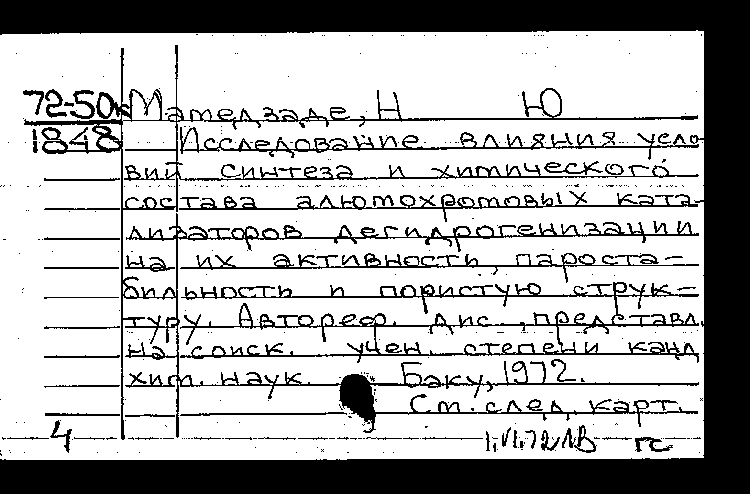 72-50к Мамедзаде, Н Ю
1848 Исследование влияния усло-
вий синтеза и химического
состава алюмохромовых ката-
лизаторов дегидрогенизации
на их активность, пароста-
бильность и пористую струк-
туру. Автореф. дис., представл.
на соиск. учен. степени канд
хим. наук. Баку, 1972.
См. след. карт.
4
гс